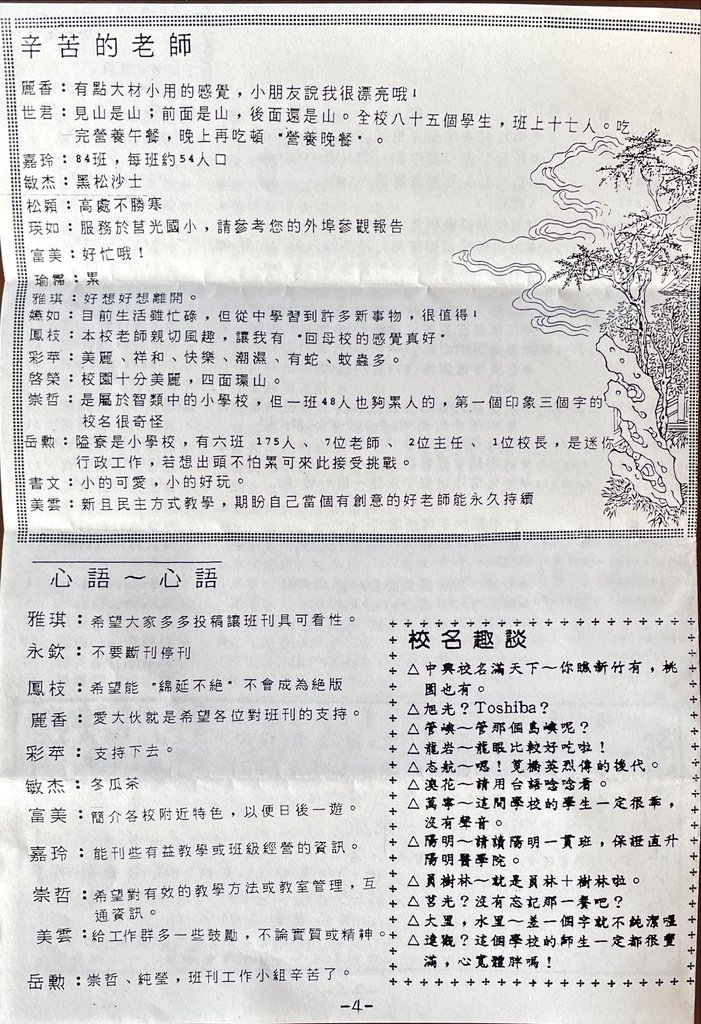 辛苦的老師
麗香：有點大材小用的感覺，小朋友說我很漂亮哦！
世君：見山是山；前面是山，後面還是山。全校八十五個學生，班上十七人。吃
一完營養午餐，晚上再吃頓"營養晚餐"。
嘉玲：84班，每班約54人口
敏杰：黑松沙士
松穎：高處不勝寒
瑛如：服務於莒光國小，請參考您的外埠參觀報告
富美：好忙哦！
瑜霈：累
雅琪：好想好想離開。
嬿如：目前生活雖忙碌，但從中學習到許多新事物，很值得！
鳳枝：本校老師親切風趣，讓我有"回母校的感覺真好"
彩苹：美麗、祥和、快樂、潮濕、有蛇、蚊蟲多。
啓榮：校園十分美麗，四面環山。
崇哲：是屬於智類中的小學校，但一班48人也夠累人的，第一個印象三個字的
校名很奇怪
岳勳：隘寮是小學校，有六班 175人、 7位老師、 2位主任、 1位校長，是迷你
行政工作，若想出頭不怕累可來此接受挑戰。
書文：小的可愛，小的好玩。
美雲：新且民主方式教學，期盼自己當個有創意的好老師能永久持續
心語～心語
雅琪：希望大家多多投稿讓班刊具可看性。
永欽：不要斷刊停刊
鳳枝：希望能"綿延不絕"不會成為絕版
麗香：愛大伙就是希望各位對班刊的支持。
彩苹：支持下去。
敏杰：冬瓜茶
富美：簡介各校附近特色，以便日後一遊。
嘉玲：能刊些有益教學或班級經營的資訊。
崇哲：希望對有效的教學方法或教室管理，互
通資訊。
美雲：給工作群多一些鼓勵，不論實質或精神。
岳勳：崇哲、純瑩，班刊工作小組辛苦了。
校名趣談
△中興校名滿天下～你瞧新竹有，桃
園也有。
△旭光？Toshiba？
△管嶼～管那個島嶼呢？
△龍岩～龍眼比較好吃啦！
△志航～嗯！筧橋英烈傳的後代。
△湳花～請用台語唸唸看。
△萬寧～這間學校的學生一定很乖，
沒有聲音。
△陽明～請讀陽明一貫班，保證直升
陽明醫學院。
△員樹林～就是員林＋樹林啦。
△莒光？沒有忘記那一餐吧？
△大里，水里～差一個字就不純潔喔
△達觀？這個學校的師生一定都很豐
滿，心寬體胖嗎！
-4-